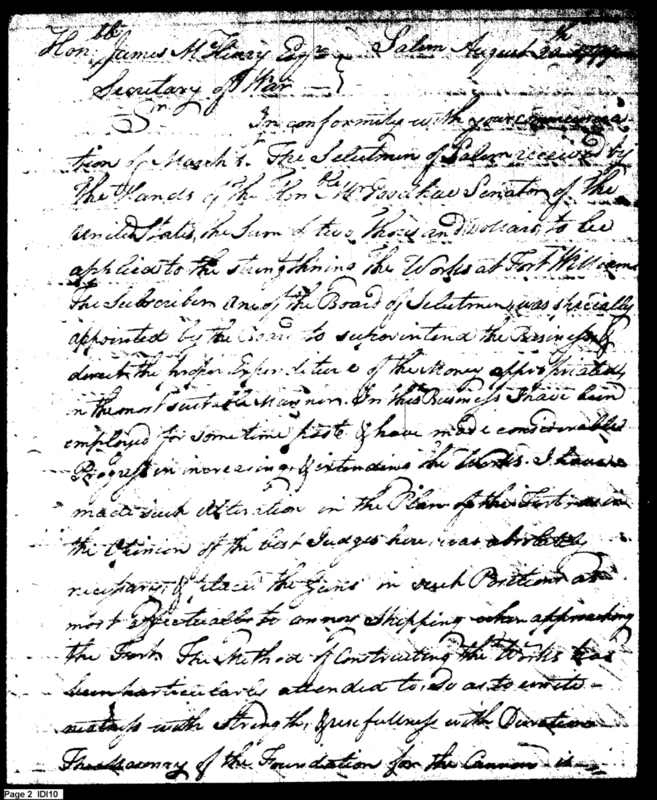 Hon.ble James McHenry Esqr } Salem August 20th
Secretary of War
Sr
In conformity with your communica
tion of March 1st The Selectmen of Salem received by
the Hands of the Honble Mr Senator of the
United States, the Sum of two thousand Dollars, to be
applied to the strengthning the Works at Fort William
The Subscriber one of the Board of Selectmen, was specially
appointed by the Board to superintend the Business &
direct the proper Expenditure of the Money appropriated,
in the most suitable Manner. In this Business I have been
employed for some time past & have made considerable
Progress in increasing & extending the Works. I have
made such Alteration in the Plan of the Fort as in
the Opinion of the best Judges here, was absolutely
necessary, & placed the Guns in such Positions as
most effectually to annoy Shipping when approaching
the Fort. The Method of Constructing the Works has
been particularly attended to, so as to unite
neatness with Strength, & usefullness with Duration
The Masonry of the Foundation for the Cannon is
Page 2 IDI10